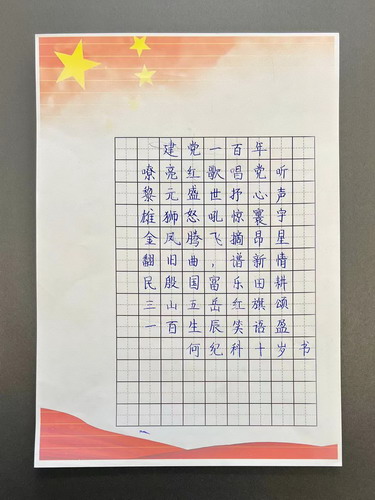 建党一百年
嘹亮红歌唱党听
黎元盛世抒心声
雄狮怒吼惊寰宇
金凤腾飞摘昂星
翻旧曲，谱新情
民殷国富乐田耕
三山五岳红旗颂
一百生辰笑语盈
何纪科十岁书